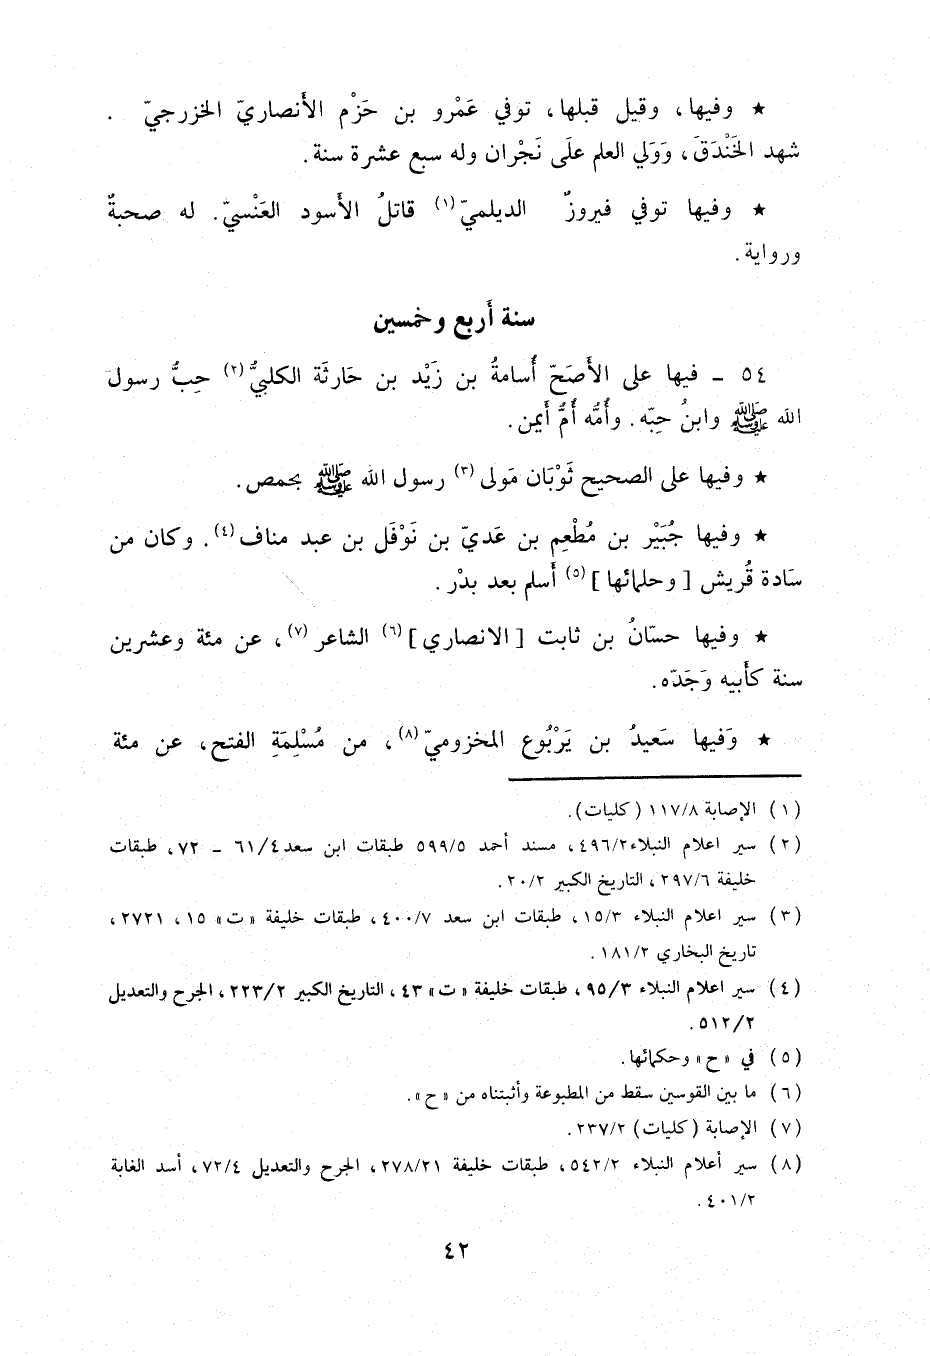 ★ وفيها، وقيل قبلها، توفي عَمْرو بن حَزْم الأَنصاريّ الخزرجيّ .
شهد الخَنْدَقَ، وَوَلي العلم علَى نَجْران وله سبع عشرة سنة.
★ وفيها توفي فيروزٌ الديلميّ(١) قاتلُ الأَسود العَنْسيّ. له صحبةٌ
ورواية.
سنة أربع وخمسين
٥٤ ــ فيها على الأَصَحّ أُسامةُ بن زَيْد بن حَارثَة الكلبيُّ(٢) حِبُّ رسول
الله ﷺ وابنُ حِبّه. وأُمُّه أُمُّ أَيمن.
★ وفيها على الصحيح ثَوْبَان مَولى(٣) رسول الله ﷺ بحمص.
★ وفيها جُبَيْر بن مُطْعِم بن عَديّ بن نَوْفَل بن عبد مناف(٤). وكان من
سَادة قُريش [وحلمائها](٥) أَسلم بعد بدْر.
★ وفيها حسّانُ بن ثابت [الانصاري](٦) الشاعر(٧)، عن مئة وعشرين
سنة كأَبيه وَجَدّه.
★ وَفيها سَعيدُ بن يَرْبُوع المخزوميّ(٨)، من مُسْلِمَةِ الفتح، عن مئة
(١) الإصابة ١١٧/٨ (كليات).
(٢) سير اعلام النبلاء ٤٩٦/٢، مسند أحمد ٥٩٩/٥ طبقات ابن سعد ٦١/٤ ــ ٧٢، طبقات
خليفة ٢٩٧/٦، التاريخ الكبير ٢٠/٢.
(٣) سير اعلام النبلاء ١٥/٣، طبقات ابن سعد ٤٠٠/٧، طبقات خليفة «ت» ١٥، ٢٧٢١،
تاريخ البخاري ١٨١/٢.
(٤) سير اعلام النبلاء ٩٥/٣، طبقات خليفة «ت» ٤٣، التاريخ الكبير ٢٢٣/٢، الجرح والتعديل
٥١٢/٢.
(٥) في «ح» وحكمائها.
(٦) ما بين القوسين سقط من المطبوعة وأثبتناه من «ح».
(٧) الإصابة (كليات) ٢٣٧/٢.
(٨) سير أعلام النبلاء ٥٤٢/٢، طبقات خليفة ٢٧٨/٢١، الجرح والتعديل ٧٢/٤، أسد الغابة
٤٠١/٢.
٤٢